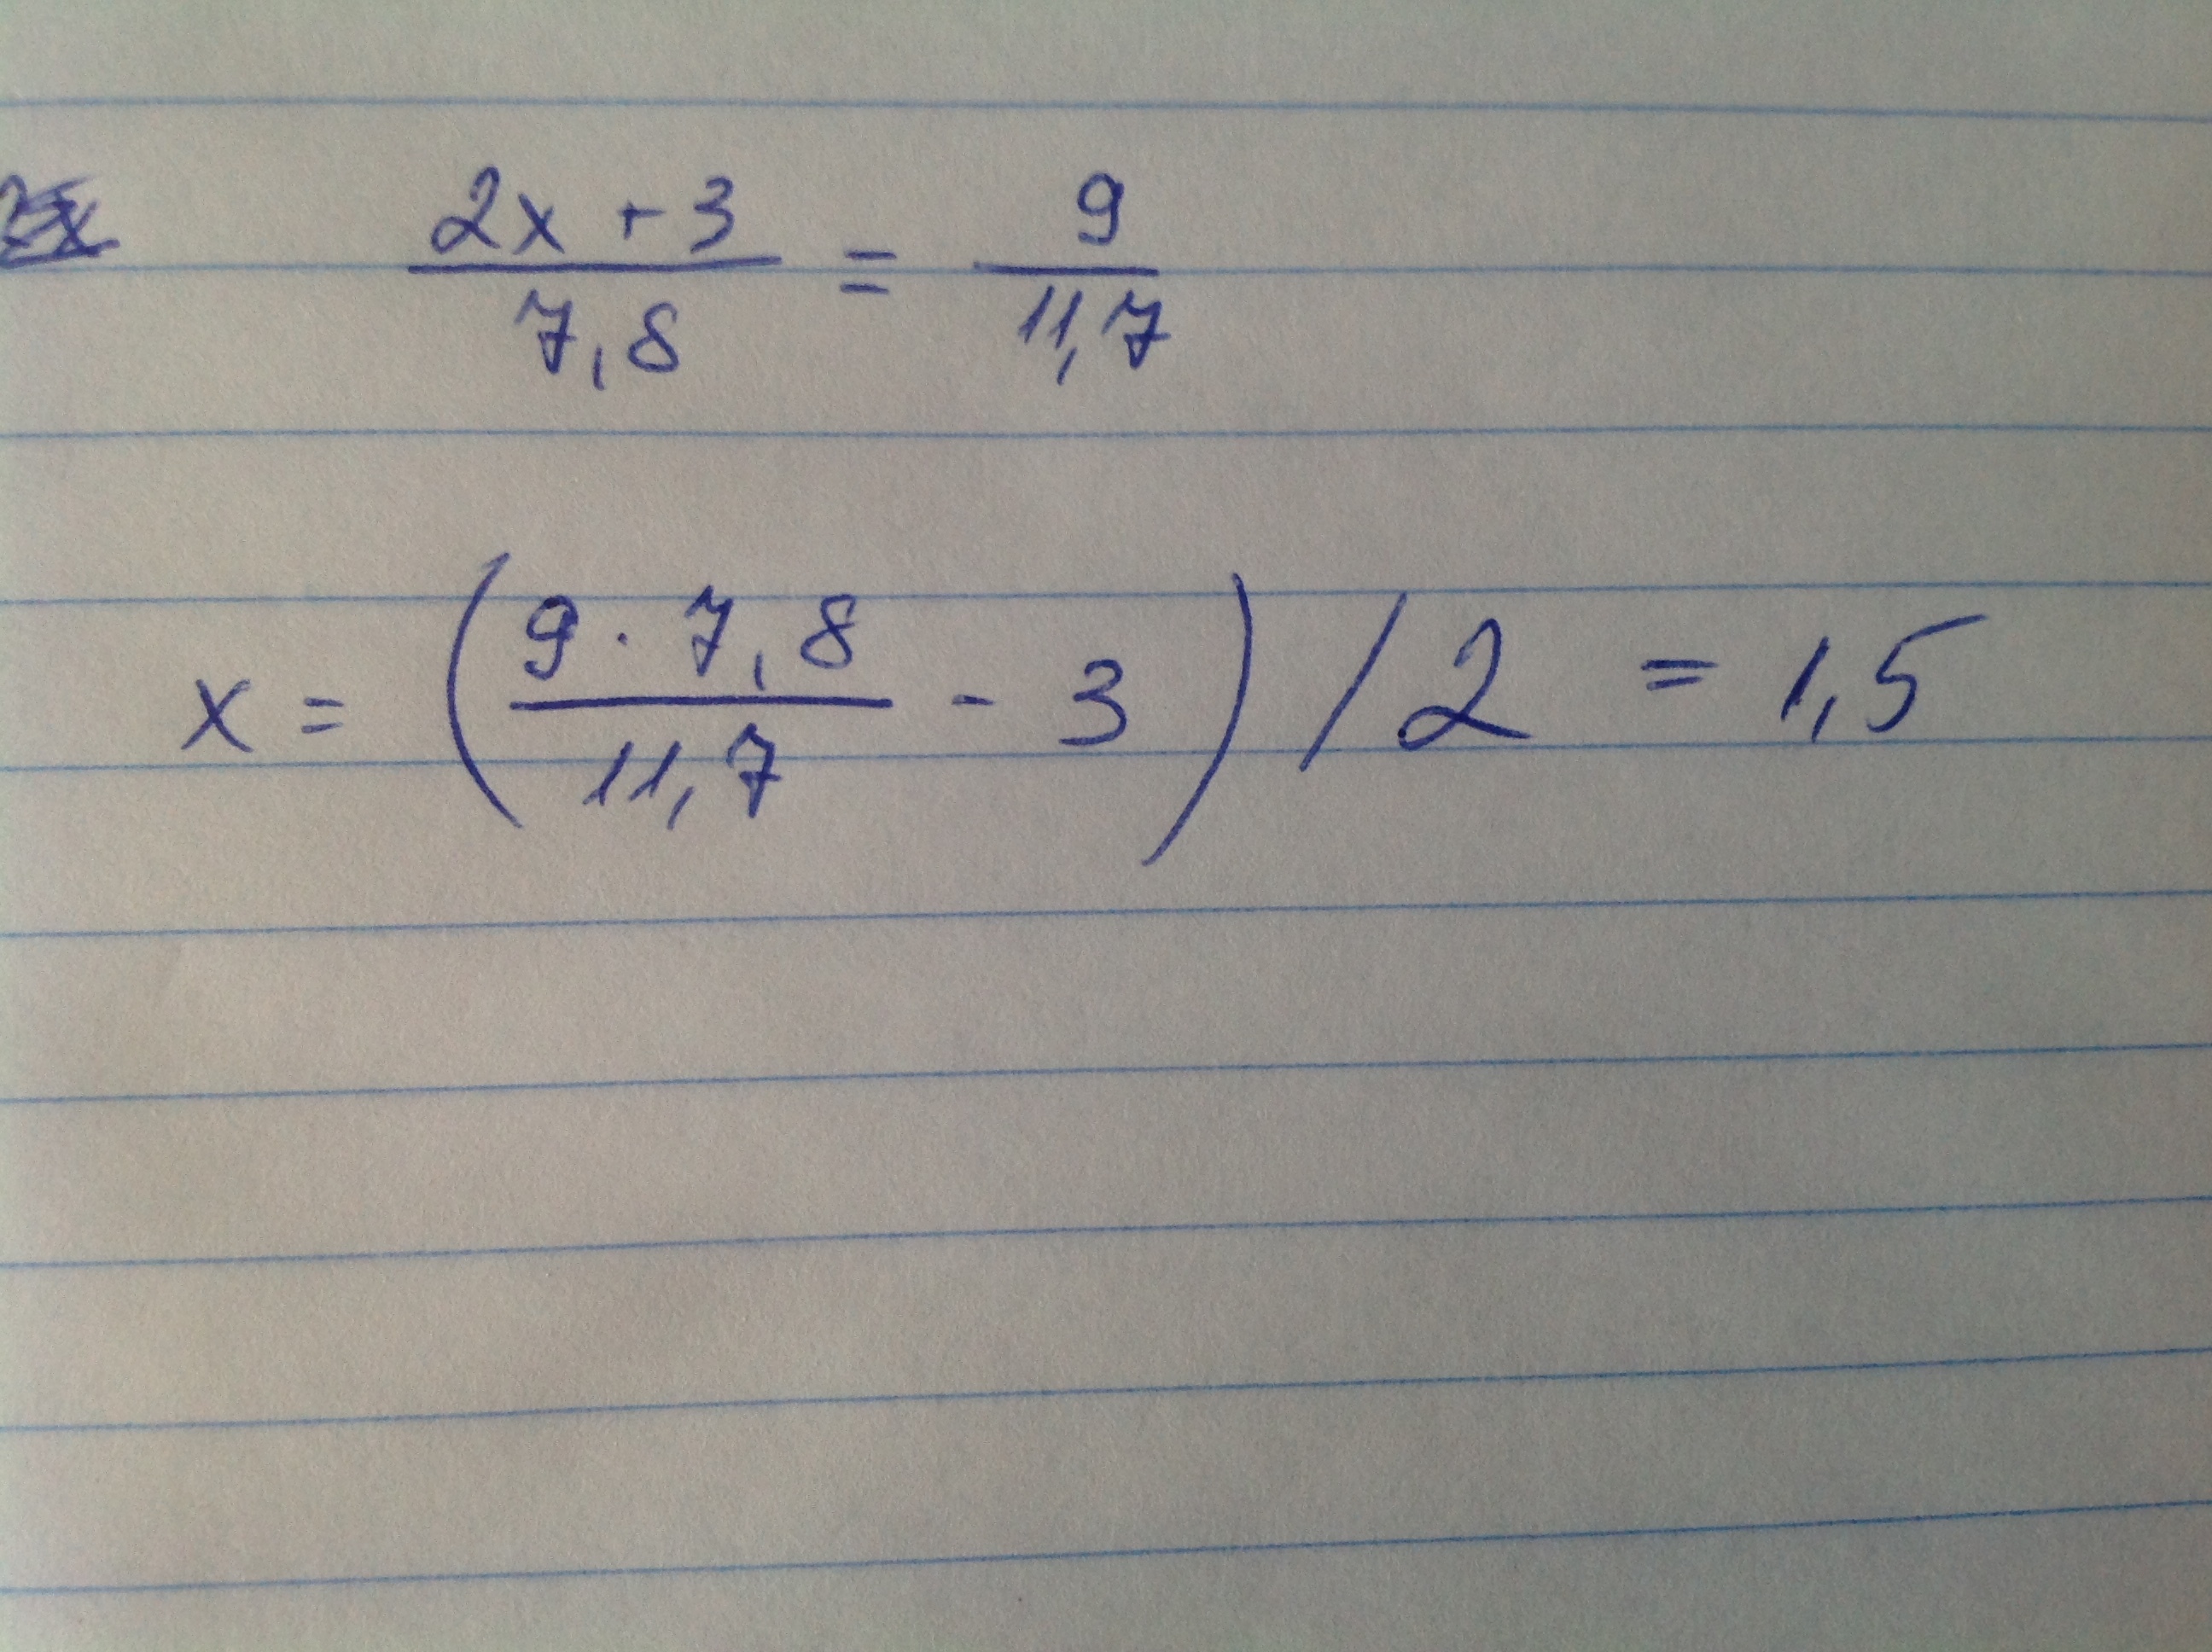 2x + 3 / 7,8 = 9 / 11,7
x = ( 9 · 7,8 / 11,7 - 3 ) / 2 = 1,5